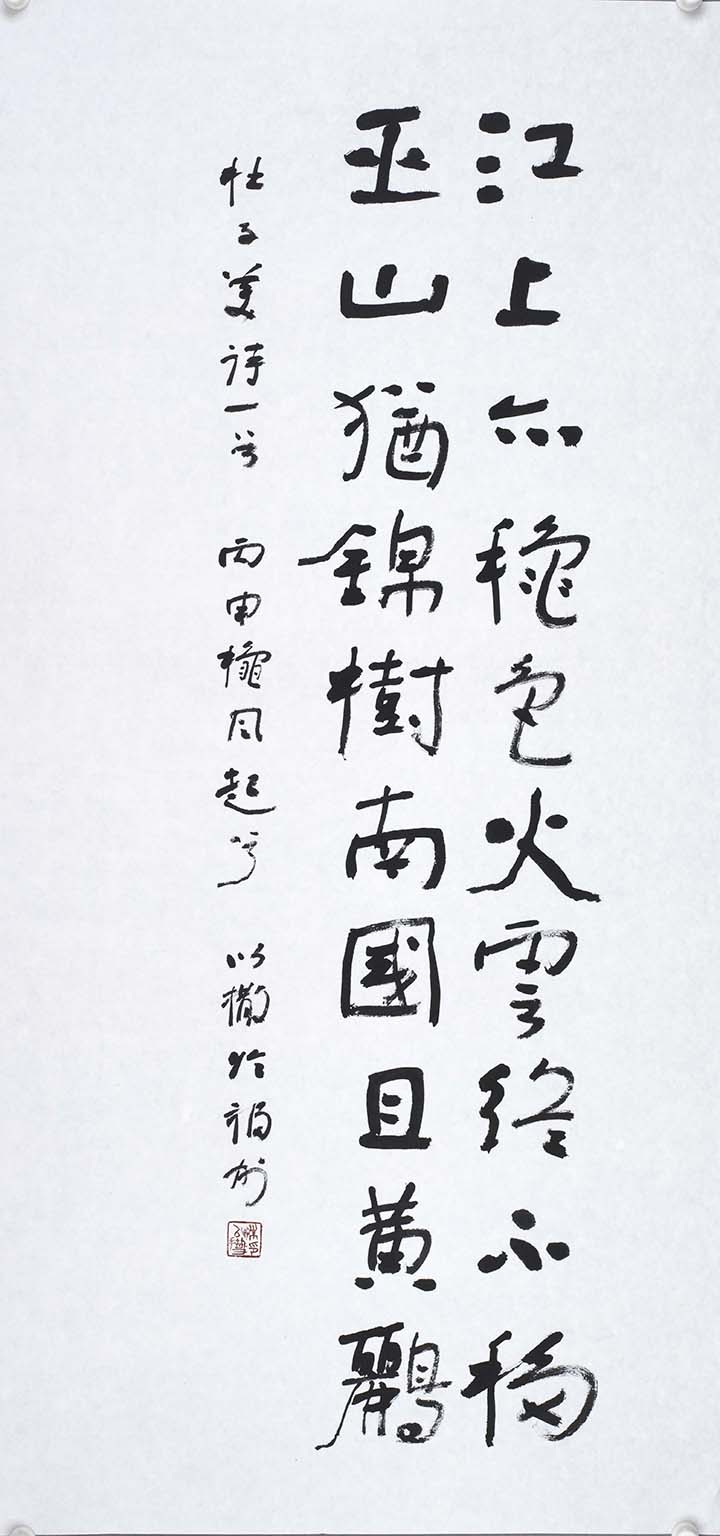 江上亦穐色火雲終不移
巫山猶錦樹南國且黃鸝
杜子美詩一首 丙申穐風起兮 以撒於福州